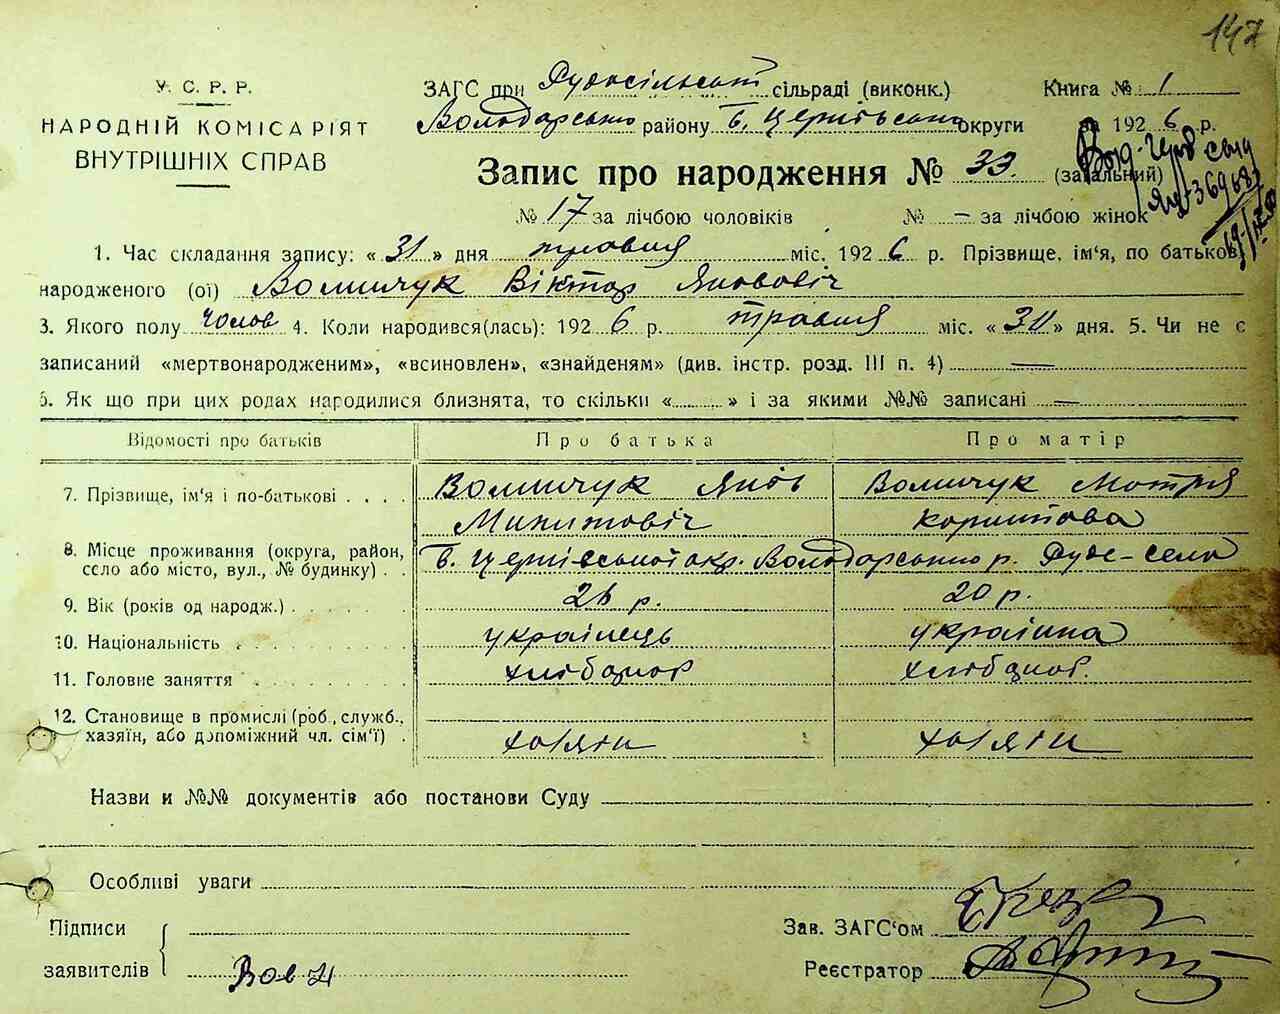 147
У. С. Р. Р.
НАРОДНІЙ КОМІСАРІЯТ
ВНУТРІШНІХ СПРАВ
ЗАГС при Рудосільській сільраді (виконк.)
Книга № 1
Володарсько району Б. Церківсько округи
за 1926 р.
Запис про народження № 33. (загальний)
№ 17 за лічбою чоловіків № — за лічбою жінок
1. Час складання запису: « 31 » дня травня міс. 1926 р. Прізвище, ім'я, по батькові
народженого (ої) Віктор Яковович
3. Якого полу чолов 4. Коли народився(лась): 1926 р. травня міс. « » дня. 5. Чи не є
записаний «мертвонародженим», «всиновлен», «знайденям» (див. інстр. розд. III п. 4) —
6. Як що при цих родах народилися близнята, то скільки « » і за якими №№ записані —
Відомості про батьків Про батька Про матір
7. Прізвище, ім'я і по-батькові Яків Мотря
Микитовіч
8. Місце проживання (округа, район, село або місто, вул., № будинку) Б. Церківської окр. Володарсько р. Руде-село
9. Вік (років од народж.) 26 р. 20 р.
10. Національність українець українка
11. Головне заняття хлібороб хлібороб.
12. Становище в промислі (роб., служб., хазяїн, або допоміжний чл. сім'ї) хазяїн хазяїн
Назви и №№ документів або постанови Суду
Особливі уваги
Підписи
заявителів
Зав. ЗАГС'ом
Реєстратор